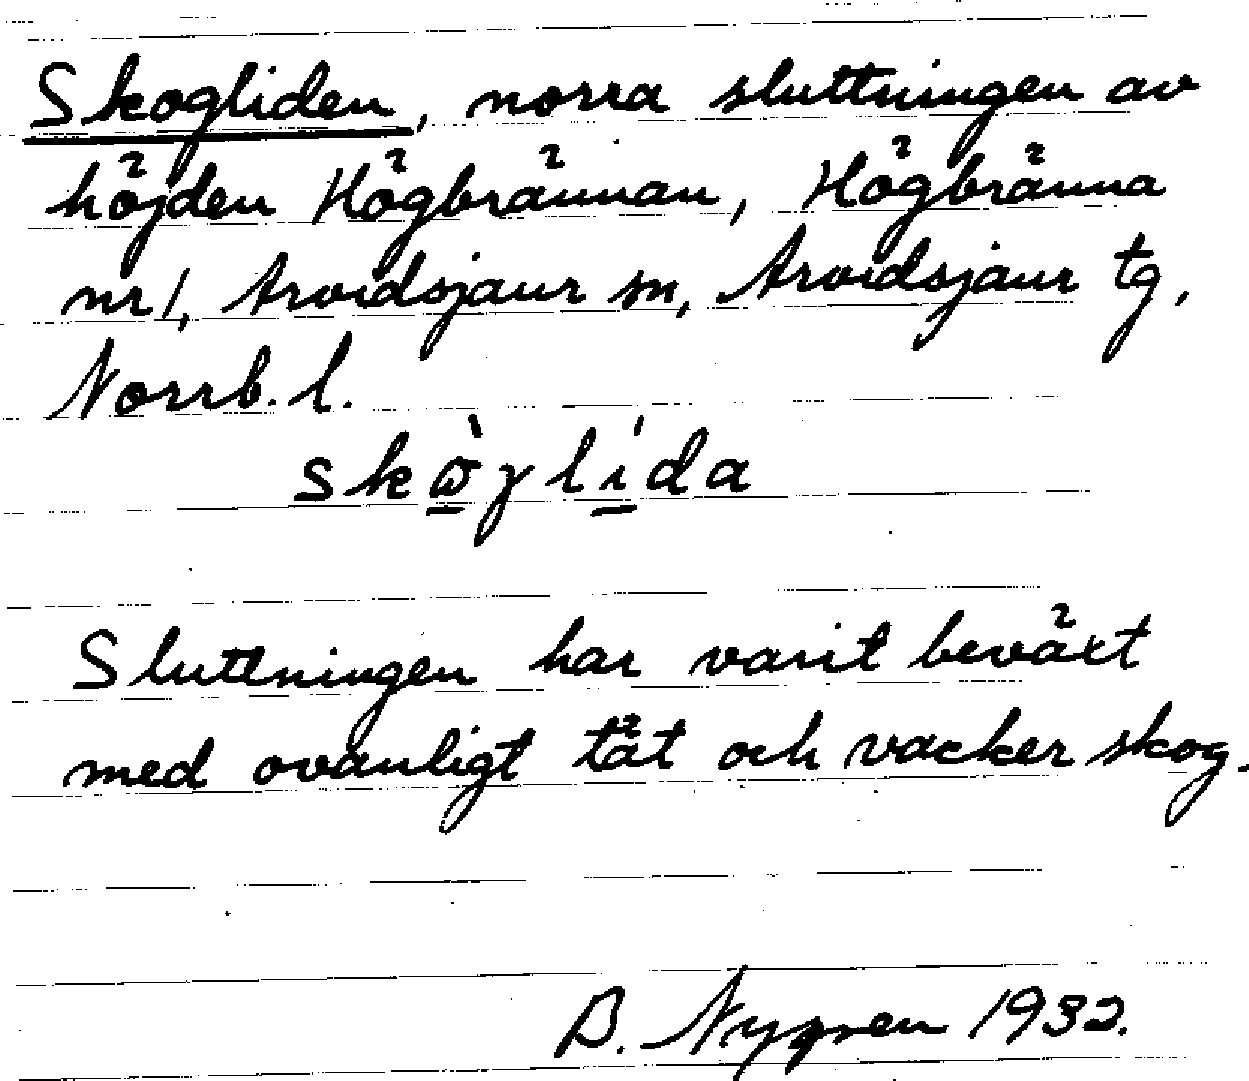 Skogliden, norra sluttningen av
höjden Högbrännan, Högbränna
nr 1, Arvidsjaur sn, Arvidsjaur tg,
Norrb. l.
skὼ̲γlí̲da
Sluttningen har varit beväxt
med ovanligt tät och vacker skog.
B. Nygren 1932.